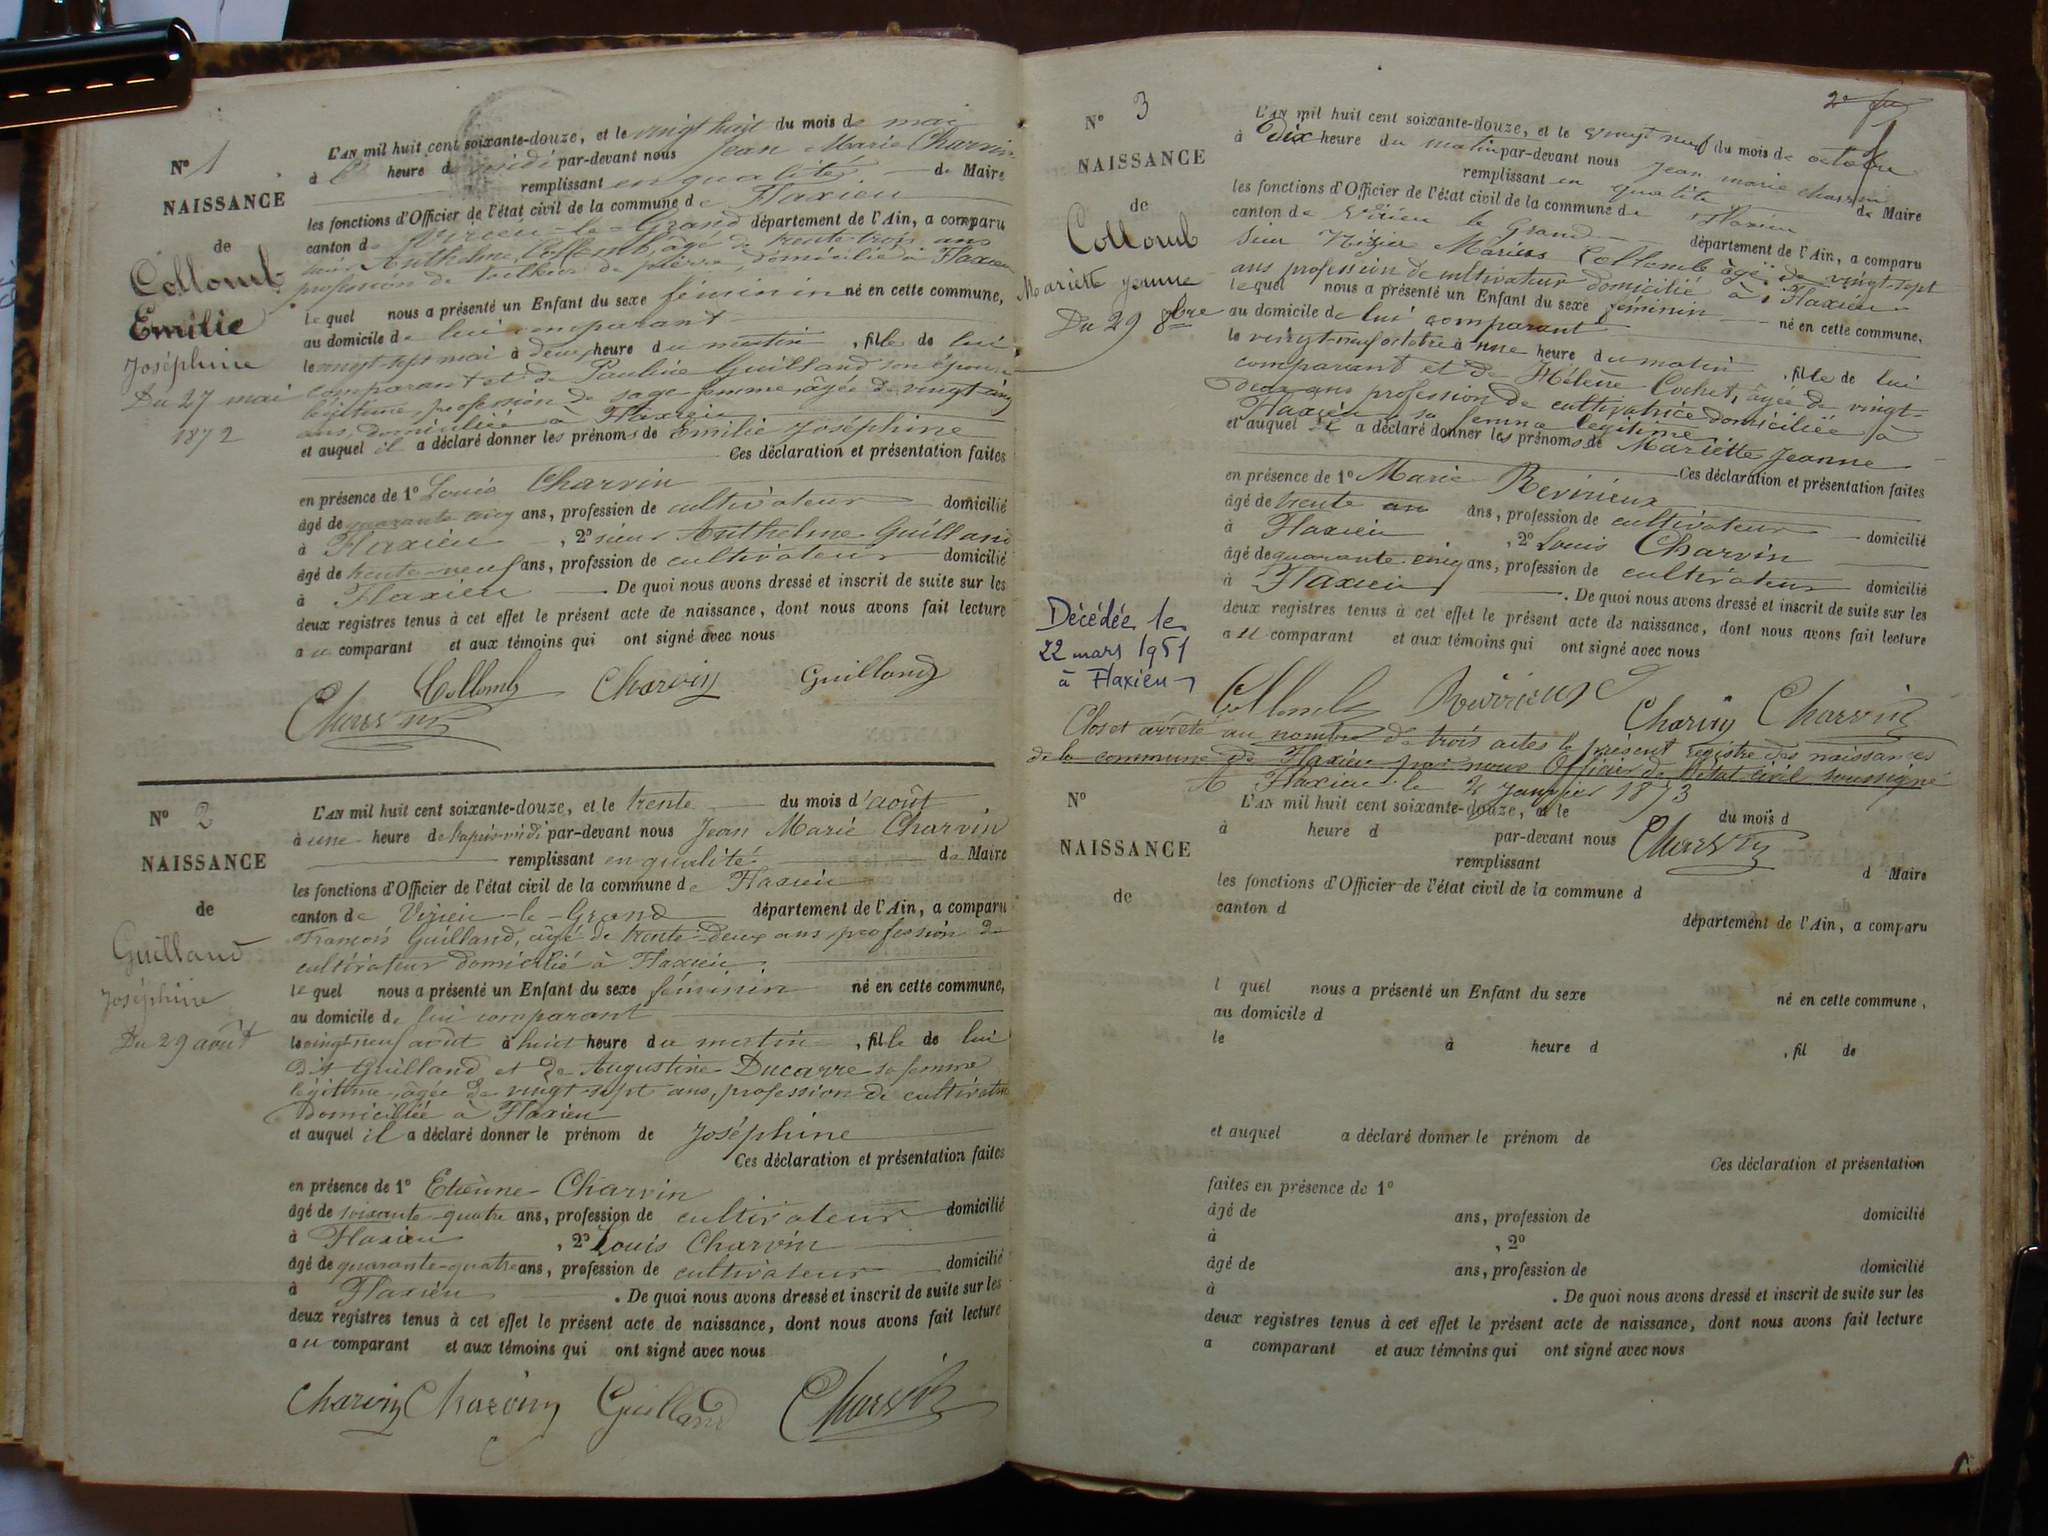 N° 1
NAISSANCE
de
Collomb
Emilie
Joséphine
Du 27 mai
1872
L'AN mil huit cent soixante-douze, et le vingt huit du mois de mai
à heure de midi par-devant nous Jean Marie Charvin
remplissant en qualité de Maire
les fonctions d'Officier de l'état civil de la commune de Flaxieu
canton de Virieu-le-Grand département de l'Ain, a comparu
sieur Anthelme Collomb, âgé de trente-trois ans
profession de tailleur de pierre, domicilié à Flaxieu
lequel nous a présenté un Enfant du sexe féminin né en cette commune,
au domicile de lui comparant
le vingt-sept mai à deux heure du matin, fille de lui
comparant et de Pauline Guilland son épouse
légitime, profession de sage femme, âgée de vingt cinq
ans, domiciliée à Flaxieu
et auquel il a déclaré donner les prénoms de Emilie Joséphine
Ces déclaration et présentation faites
en présence de 1° Louis Charvin
âgé de quarante cinq ans, profession de cultivateur domicilié
à Flaxieu, 2° sieur Anthelme Guilland
âgé de trente-neuf ans, profession de cultivateur domicilié
à Flaxieu. De quoi nous avons dressé et inscrit de suite sur les
deux registres tenus à cet effet le présent acte de naissance, dont nous avons fait lecture
au comparant et aux témoins qui ont signé avec nous
Collomb Charvin Guilland
Charvin
N° 2
NAISSANCE
de
Guilland
Joséphine
Du 29 août
L'AN mil huit cent soixante-douze, et le trente du mois d'août
à une heure de l'après-midi par-devant nous Jean Marie Charvin
remplissant en qualité de Maire
les fonctions d'Officier de l'état civil de la commune de Flaxieu
canton de Virieu-le-Grand département de l'Ain, a comparu
François Guilland, âgé de trente-deux ans, profession de
cultivateur domicilié à Flaxieu
lequel nous a présenté un Enfant du sexe féminin né en cette commune,
au domicile de lui comparant
le vingt neuf août à huit heure du matin, fille de lui
dit Guilland et de Augustine Ducarre sa femme
légitime, âgée de vingt-sept ans, profession de cultivatrice
domiciliée à Flaxieu
et auquel il a déclaré donner le prénom de Joséphine
Ces déclaration et présentation faites
en présence de 1° Etienne Charvin
âgé de soixante-quatre ans, profession de cultivateur domicilié
à Flaxieu, 2° Louis Charvin
âgé de quarante-quatre ans, profession de cultivateur domicilié
à Flaxieu. De quoi nous avons dressé et inscrit de suite sur les
deux registres tenus à cet effet le présent acte de naissance, dont nous avons fait lecture
au comparant et aux témoins qui ont signé avec nous
Charvin Charvin Guilland Charvin
N° 3
NAISSANCE
de
Collomb
Mariette Jeanne
Du 29 8bre
L'AN mil huit cent soixante-douze, et le vingt neuf du mois de octobre
à dix heure du matin par-devant nous Jean marie charvin
remplissant en qualité de Maire
les fonctions d'Officier de l'état civil de la commune de Flaxieu
canton de Virieu le Grand département de l'Ain, a comparu
Sieur Nizier Marius Collomb âgé de vingt-sept
ans profession de cultivateur domicilié à Flaxieu
lequel nous a présenté un Enfant du sexe féminin né en cette commune,
au domicile de lui comparant
le vingt-neuf octobre à une heure du matin, fille de lui
comparant et de Hélène Cochet, âgée de vingt-
deux ans profession de cultivatrice domiciliée à
Flaxieu sa femme légitime
et auquel il a déclaré donner les prénoms de Mariette Jeanne
Ces déclaration et présentation faites
en présence de 1° Marie
âgé de trente un ans, profession de cultivateur
à Flaxieu, 2° Louis Charvin domicilié
âgé de quarante cinq ans, profession de cultivateur
à Flaxieu domicilié
. De quoi nous avons dressé et inscrit de suite sur les
deux registres tenus à cet effet le présent acte de naissance, dont nous avons fait lecture
au comparant et aux témoins qui ont signé avec nous
Décédée le
22 mars 1951
à Flaxieu
Collomb Charvin Charvin
Clos et arrêté au nombre de trois actes le présent registre des naissances
de la commune de Flaxieu par nous Officier de l'état civil soussigné
A Flaxieu le janvier 1873
Charvin
N°
NAISSANCE
de
L'AN mil huit cent soixante-douze, et le du mois d
à heure d par-devant nous
remplissant d Maire
les fonctions d'Officier de l'état civil de la commune d
canton d département de l'Ain, a comparu
l quel nous a présenté un Enfant du sexe né en cette commune,
au domicile d
le à heure d , fil de
et auquel a déclaré donner le prénom de
Ces déclaration et présentation
faites en présence de 1°
âgé de ans, profession de domicilié
à , 2°
âgé de ans, profession de domicilié
à . De quoi nous avons dressé et inscrit de suite sur les
deux registres tenus à cet effet le présent acte de naissance, dont nous avons fait lecture
a comparant et aux témoins qui ont signé avec nous